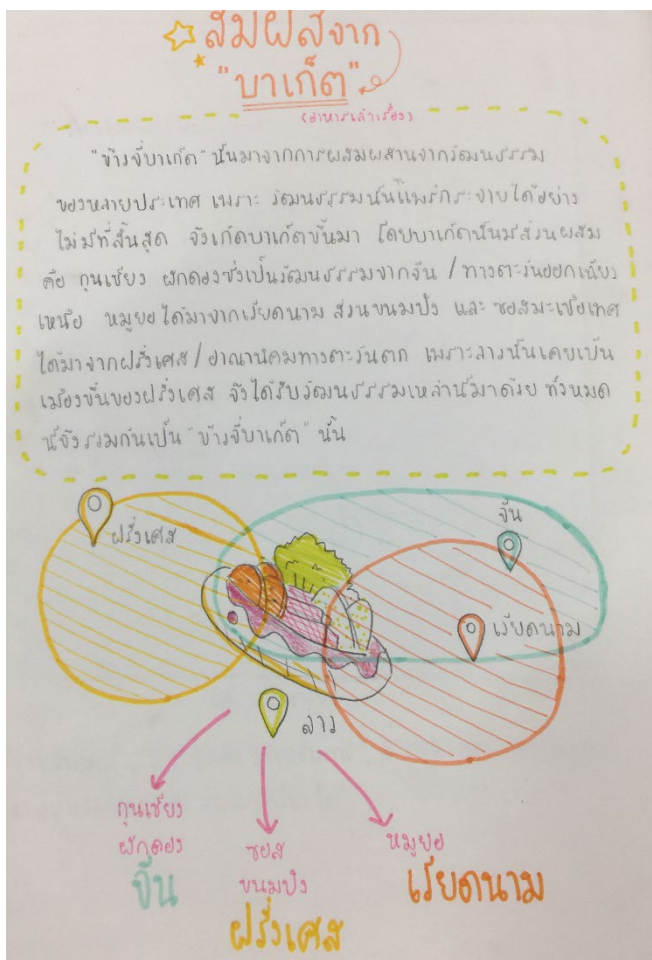 สมผสจาก
"บาเก็ต"
(อาหารเล่าเรื่อง)
"ข้าวจี่บาเก็ต" นั้นมาจากการผสมผสานจากวัฒนธรรม
ของหลายประเทศ เพราะ วัฒนธรรมนั้นแพร่กระจายได้อย่าง
ไม่มีที่สิ้นสุด จึงเกิดบาเก็ตขึ้นมา โดยบาเก็ตนั้นมีส่วนผสม
คือ กุนเชียง ผักดองซึ่งเป็นวัฒนธรรมจากจีน / ทางตะวันออกเฉียง
เหนือ หมูยอได้มาจากเวียดนาม ส่วนขนมปัง และ ซอสมะเขือเทศ
ได้มาจากฝรั่งเศส / อาณานิคมทางตะวันตก เพราะลาวนั้นเคยเป็น
เมืองขึ้นของฝรั่งเศส จึงได้รับวัฒนธรรมเหล่านี้มาด้วย ทั้งหมด
นี้จึงรวมกันเป็น "ข้าวจี่บาเก็ต" นั้น
ฝรั่งเศส
จีน
เวียดนาม
ลาว
กุนเชียง
ผักดอง
จีน
ซอส
ขนมปัง
ฝรั่งเศส
หมูยอ
เวียดนาม